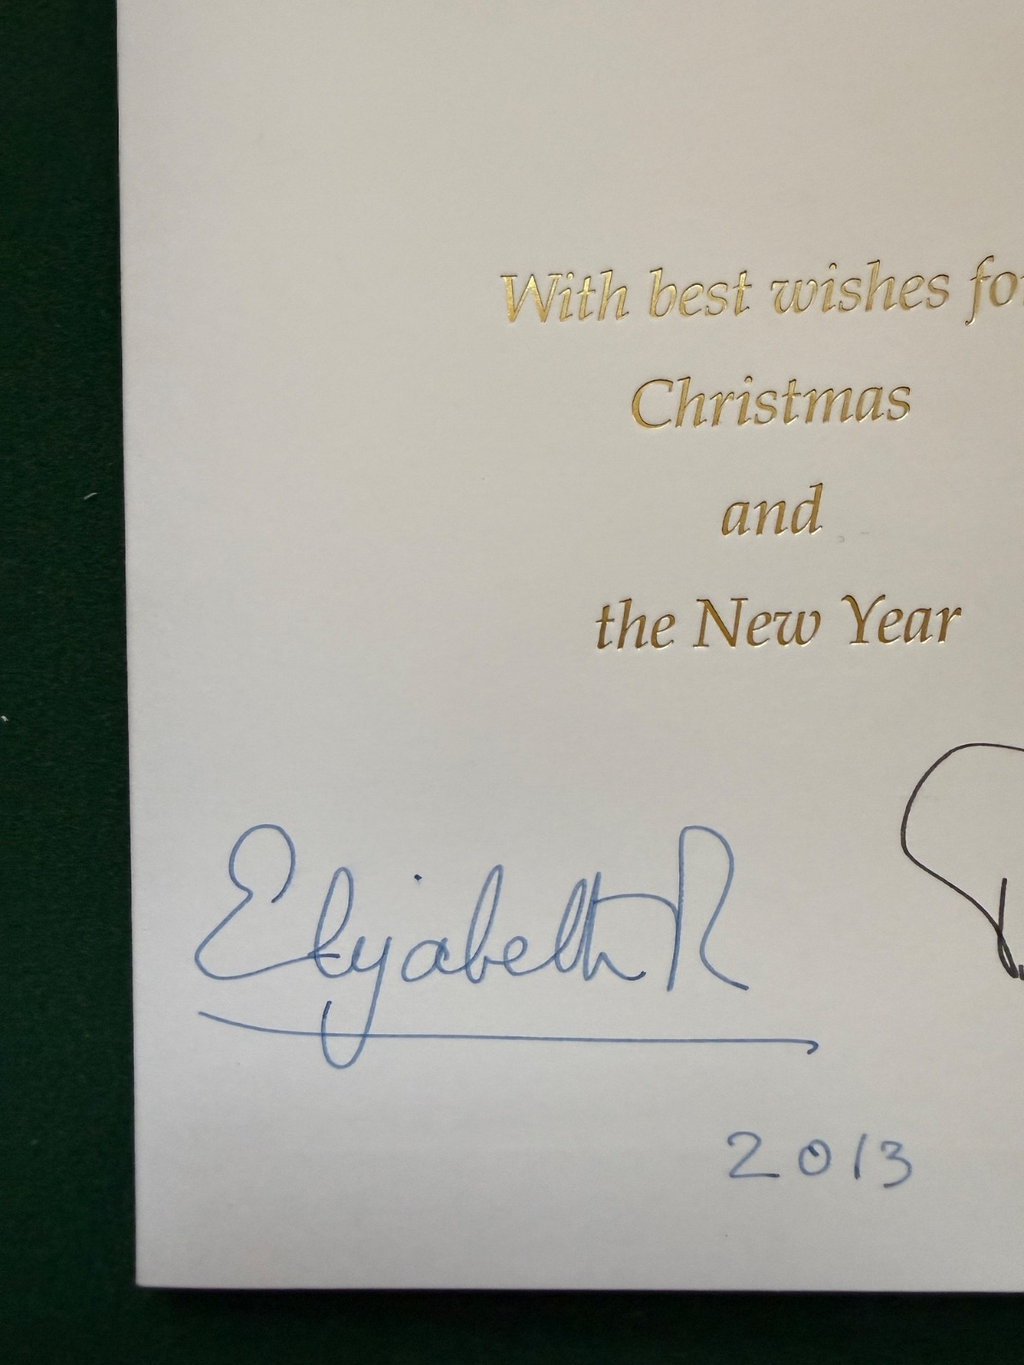 With best wishes for
Christmas
and
the New Year
Elizabeth R
2013